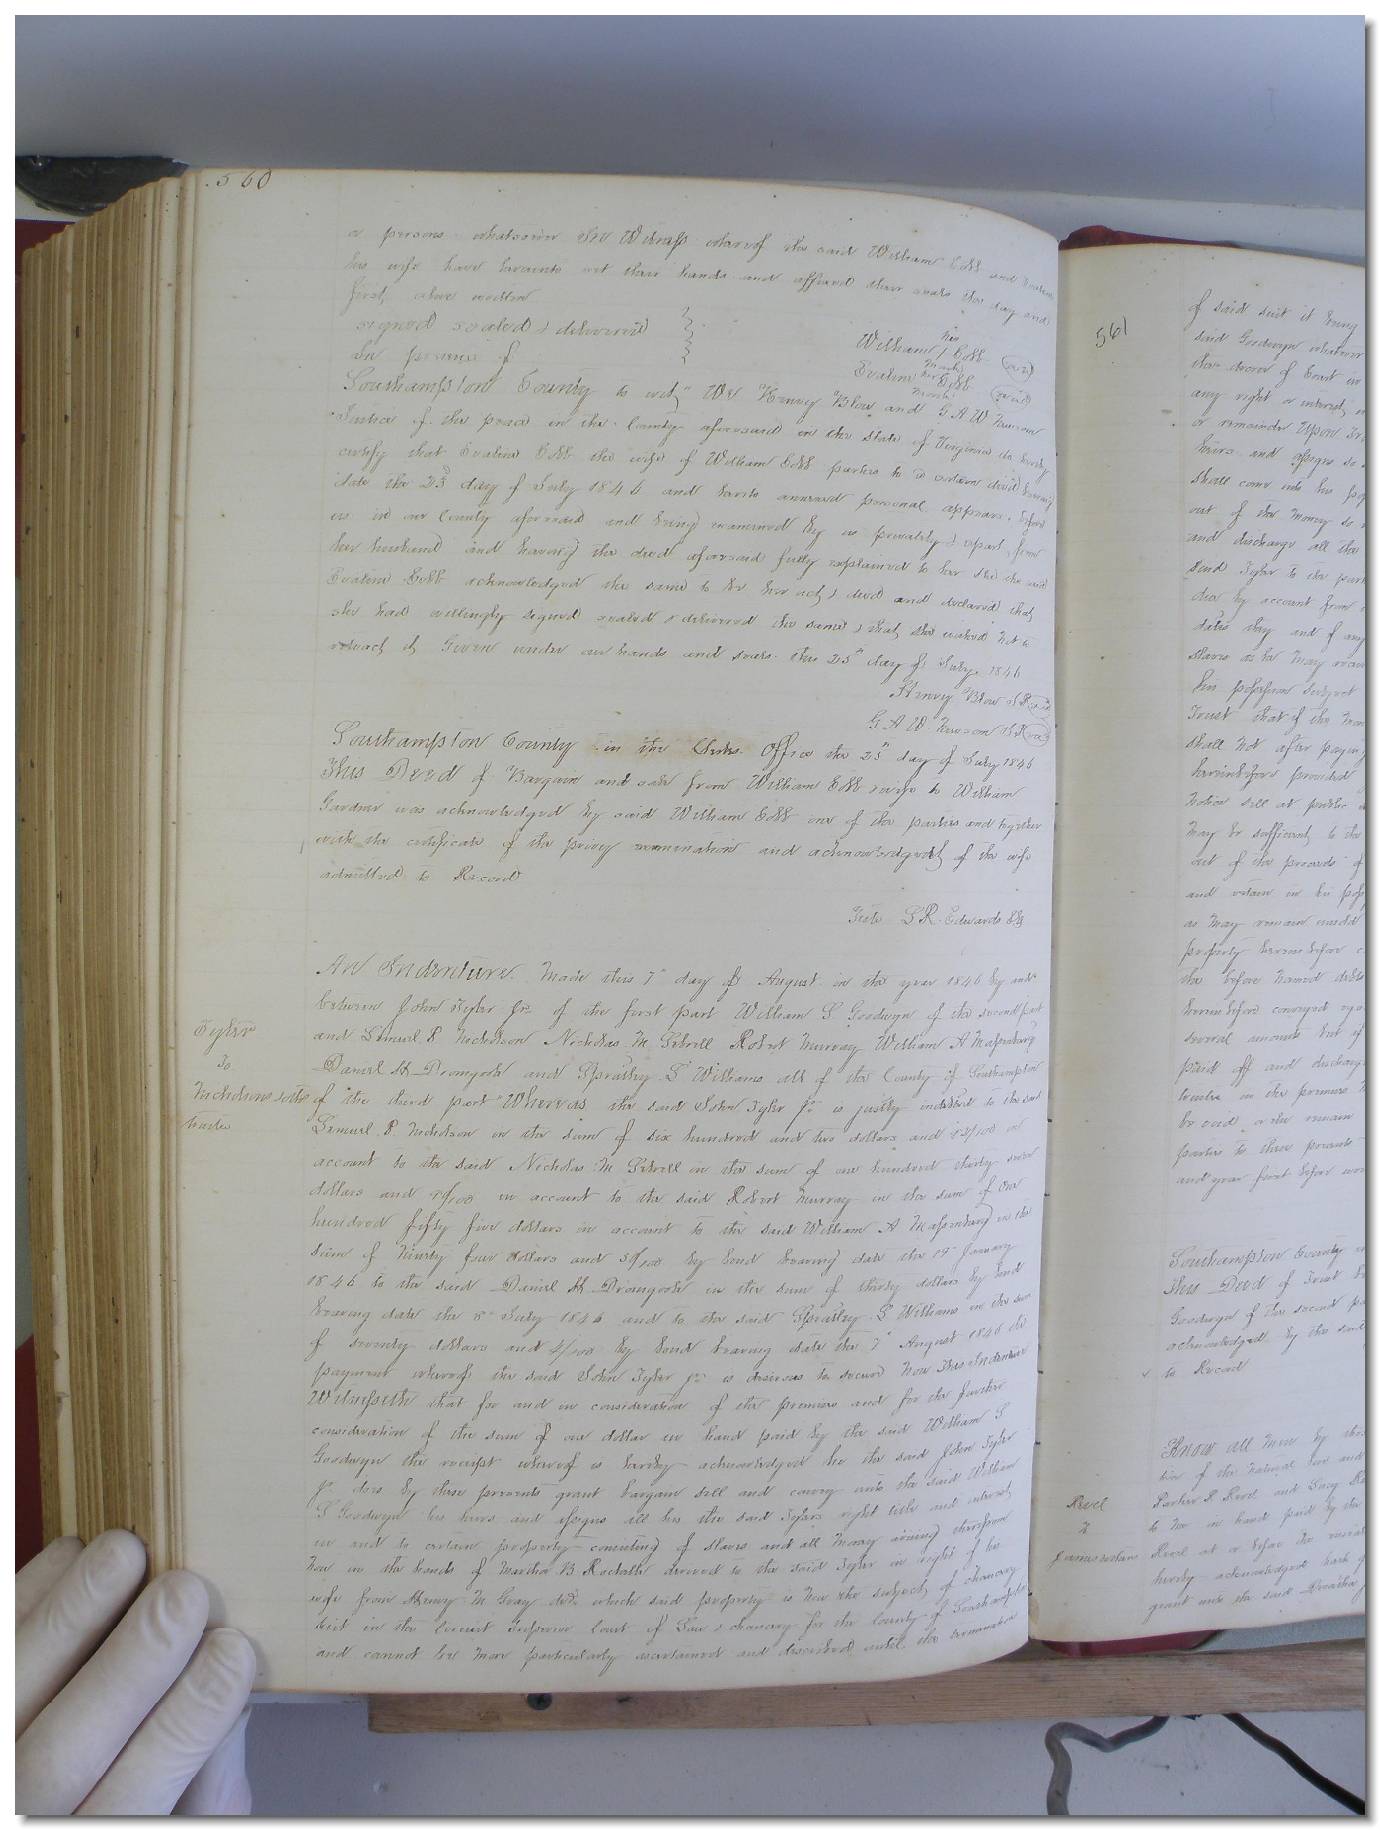 560
or persons whatsoever In Witness whereof the said William Cobb and Evaline
his wife have hereunto set their hands and affixed their seals the day and
first above written
signed sealed & delivered
In presence of
William his mark Cobb seal
Evaline her mark Cobb seal
Southampton County to wit, We Henry Blow and G. A. W. Newsom
Justices of the peace in the County aforesaid in the State of Virginia do hereby
certify that Evaline Cobb the wife of William Cobb parties to a certain deed bearing
date the 23d day of July 1846 and hereto annexed personal appears before
us in our County aforesaid and being examined by us privately & apart from
her husband and having the deed aforesaid fully explained to her she the said
Evaline Cobb acknowledged the same to be her act & deed and declared that
she had willingly signed sealed & delivered the same & that she wished not to
retract it Given under our hands and seals this 25th day of July 1846
Henry Blow J.P. seal
G A W Newsom J.P. seal
Southampton County in the Clerks Office the 25th day of July 1846
This Deed of Bargain and sale from William Cobb & wife to William
Gardner was acknowledged by said William Cobb one of the parties and together
with the certificate of the privy examination and acknowledgmt of the wife
admitted to Record
Teste L R Edwards Clk
Tyler
To
Nicholsons &others
trustee
An Indenture Made this 7th day of August in the year 1846 by and
between John Tyler Jr. of the first part William S Goodwyn of the second part
and Lemuel P. Nicholson Nicholas M. Sebrell Robert Murray William A Massenburg
Daniel H Dromgoole and Spratley S Williams all of the County of Southampton
of the third part Whereas the said John Tyler Jr. is justly indebted to the said
Lemuel P. Nicholson in the sum of six hundred and two dollars and 12/100 in
account to the said Nicholas M Sebrell in the sum of one hundred thirty seven
dollars and /100 in account to the said Robert Murray in the sum of One
hundred fifty five dollars in account to the said William A Massenburg in the
sum of Ninety four dollars and 50/100 by bond bearing date the 19th January
1846 to the said Daniel H Dromgoole in the sum of thirty dollars by bond
bearing date the 8th July 1846 and to the said Spratley S Williams in the sum
of seventy dollars and 4/100 by bond bearing date the 7th August 1846 the
payment whereof the said John Tyler Jr. is desirous to secure Now This Indenture
Witnesseth that for and in consideration of the premises and for the further
consideration of the sum of one dollar in hand paid by the said William S
Goodwyn the receipt whereof is hereby acknowledged he the said John Tyler
Jr. does by these presents grant bargain sell and convey unto the said William
S Goodwyn his heirs and assigns all his the said Tylers right title and interest
in and to certain property consisting of slaves and all Money arising therefrom
Now in the hands of Martha B Rochelle derived to the said Tyler in right of his
wife from Henry M Gray decd. which said property is Now the subject of chancery
suit in the Circuit Superior Court of Law & chancery for the County of Southampton
and cannot be More particularly ascertained and described until the termination
561
of said suit it being
said Goodwyn whatever
the decree of Court in
any right or interest
or remainder Upon Tr
heirs and assigns so
shall come into his pos
out of the Money so
and discharge all the
said Tyler to the part
due by account from
dates they and if any
slaves as he May
his possession subject
Trust that if the
shall not after paying
hereinbefore provided
Notice sell at public
May be sufficient to the
out of the proceeds of
and retain in his pos
as May remain unsold
property hereinbefore
the before Named debts
hereinbefore conveyed
several amounts but if
paid off and discharg
trustee in the premises
be void or else remain
parties to these presents
and year first before wr
Southampton County
This Deed of Trust
Goodwyn of the second pa
acknowledged by the said
to Record
Revel
to
Know all Men by the
tion of the Natural love and
Parker P. Revel and Lucy
to me in hand paid by the
Revel at or before the
hereby acknowledged hath
grant unto the said